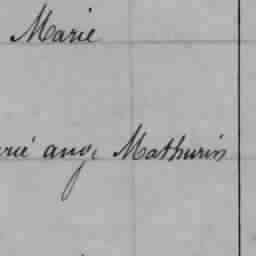 Marie
rié aug. Mathurin